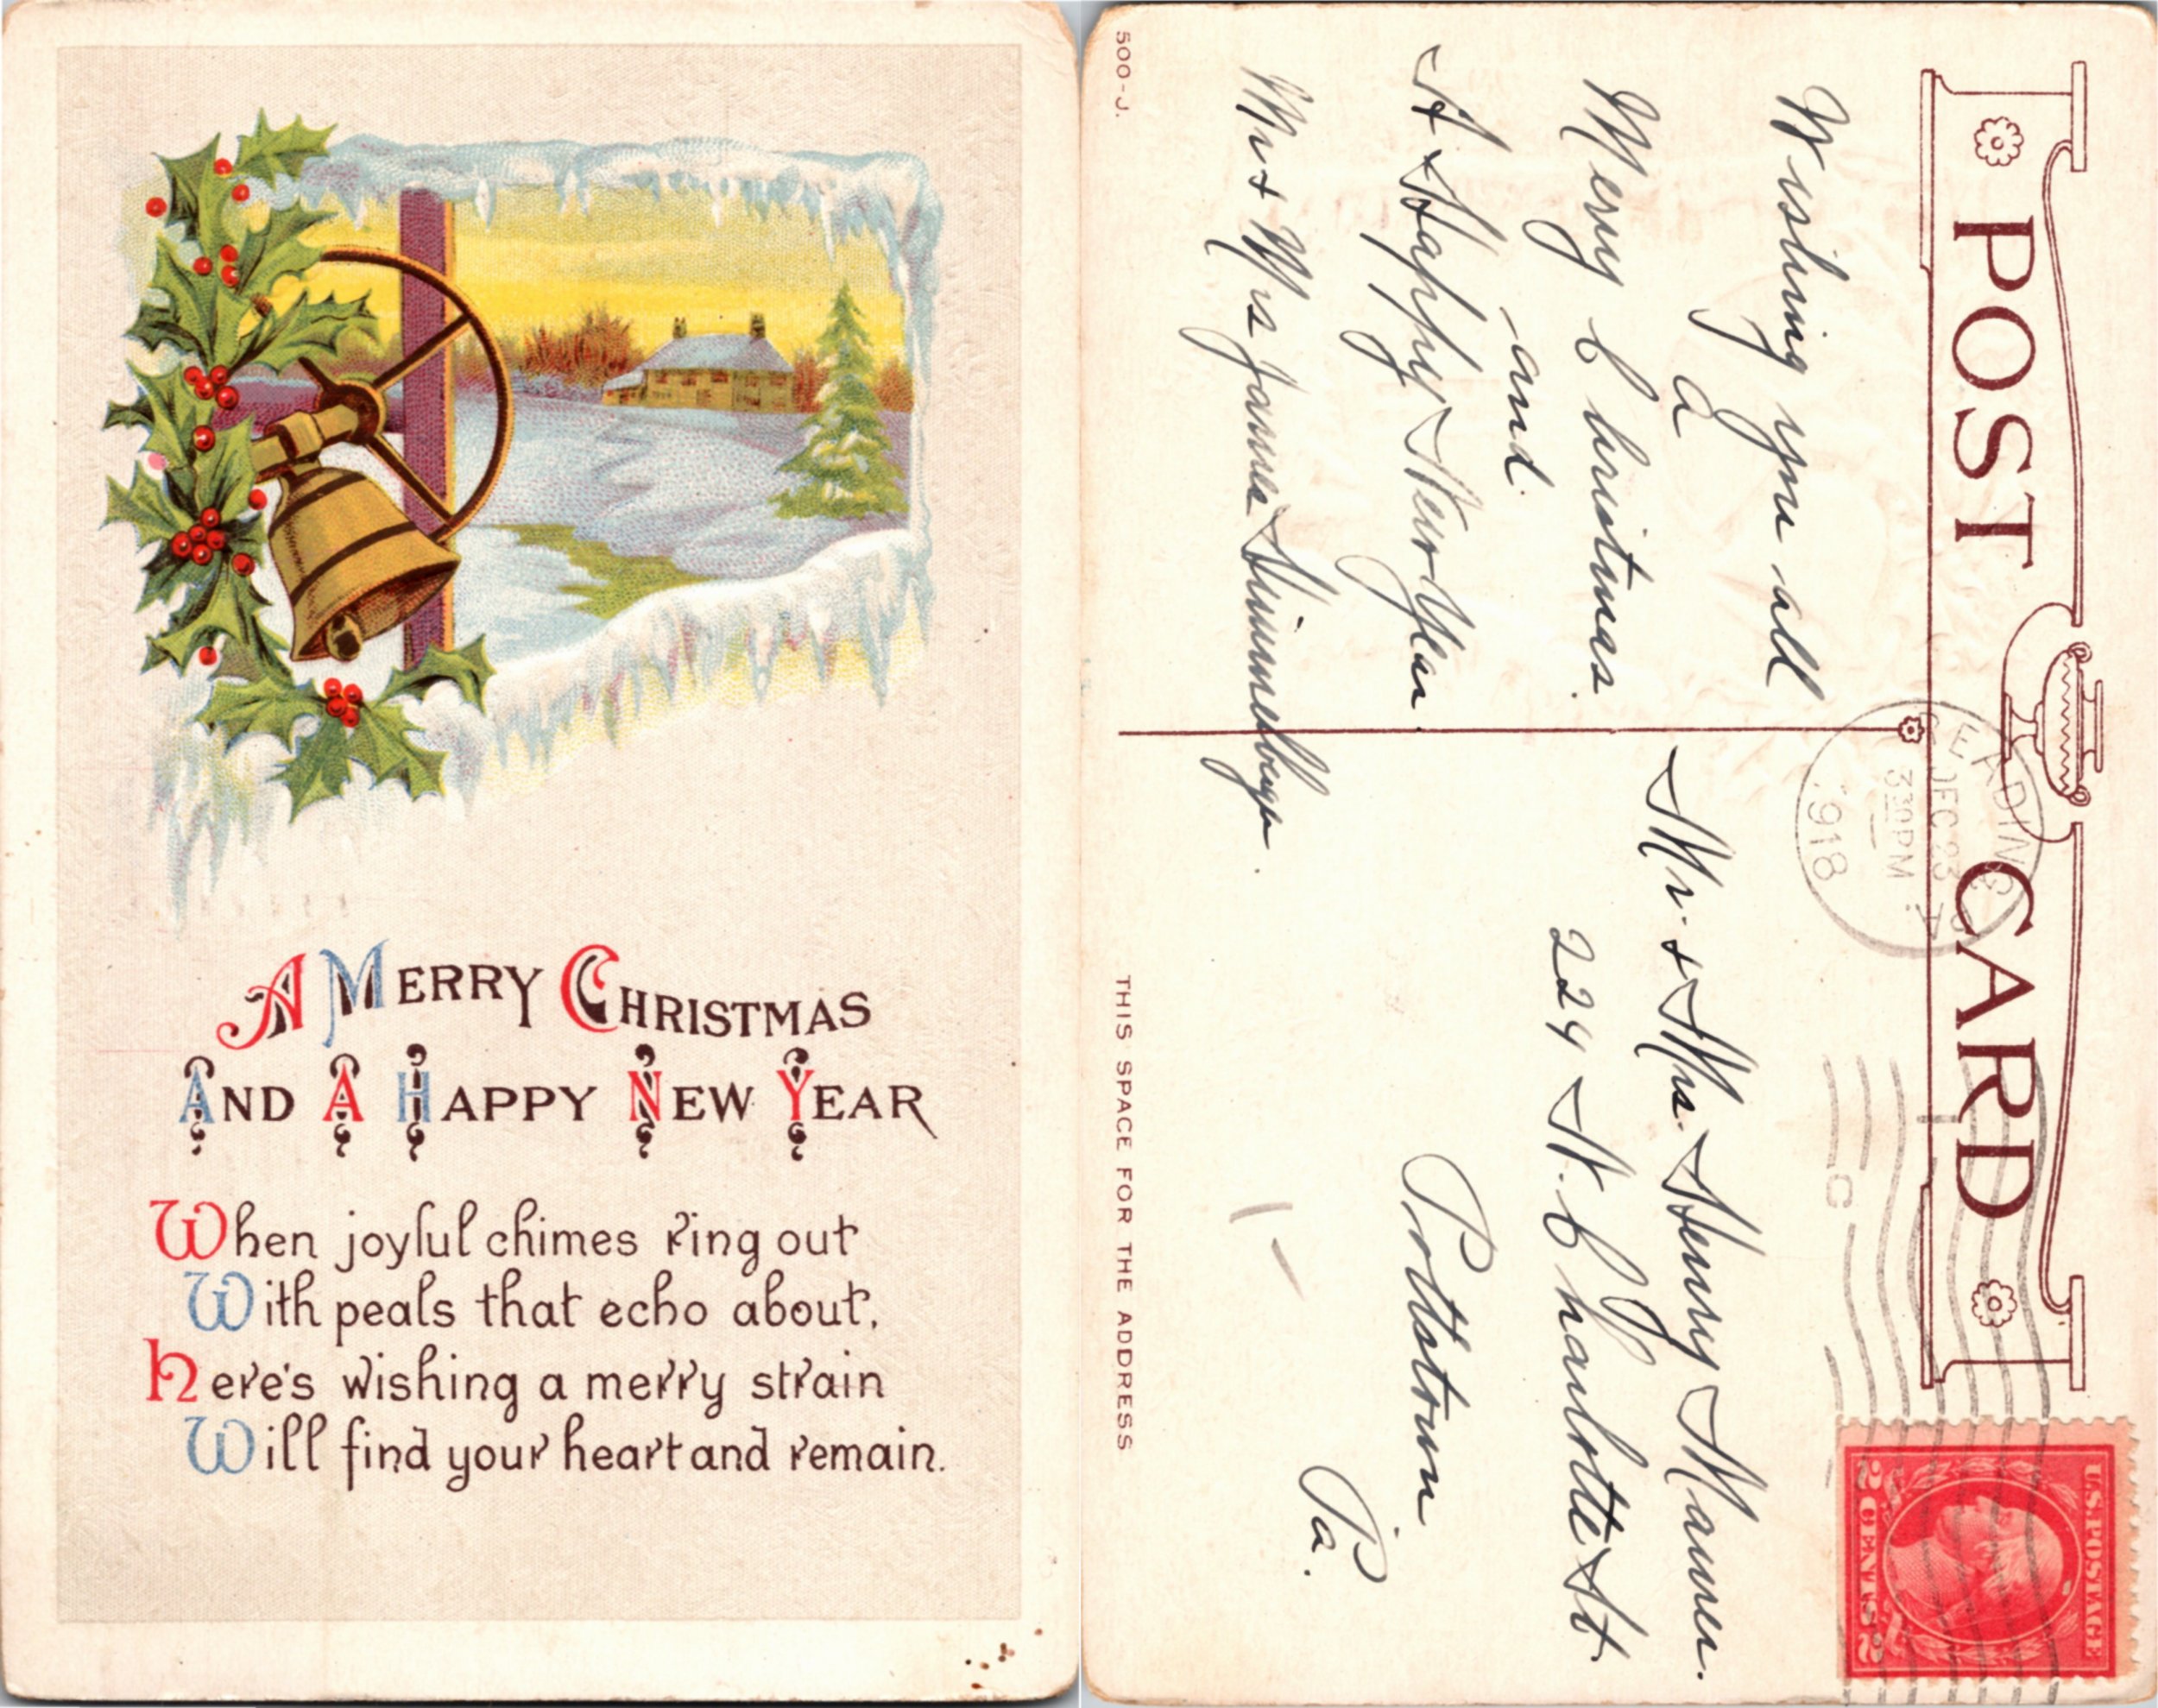 A MERRY CHRISTMAS
AND A HAPPY NEW YEAR
When joyful chimes ring out
With peals that echo about,
Here's wishing a merry strain
Will find your heart and remain.
POST CARD
Wishing you all
a
Merry Christmas.
and
A Happy New Year.
Mr + Mrs James
500-J.
EADING
DEC 23
330 PM
1918
C
U.S. POSTAGE
2 CENTS 2
Mr. + Mrs. Henry
224 N. Charlotte St.
Pottstown
Pa.
THIS SPACE FOR THE ADDRESS